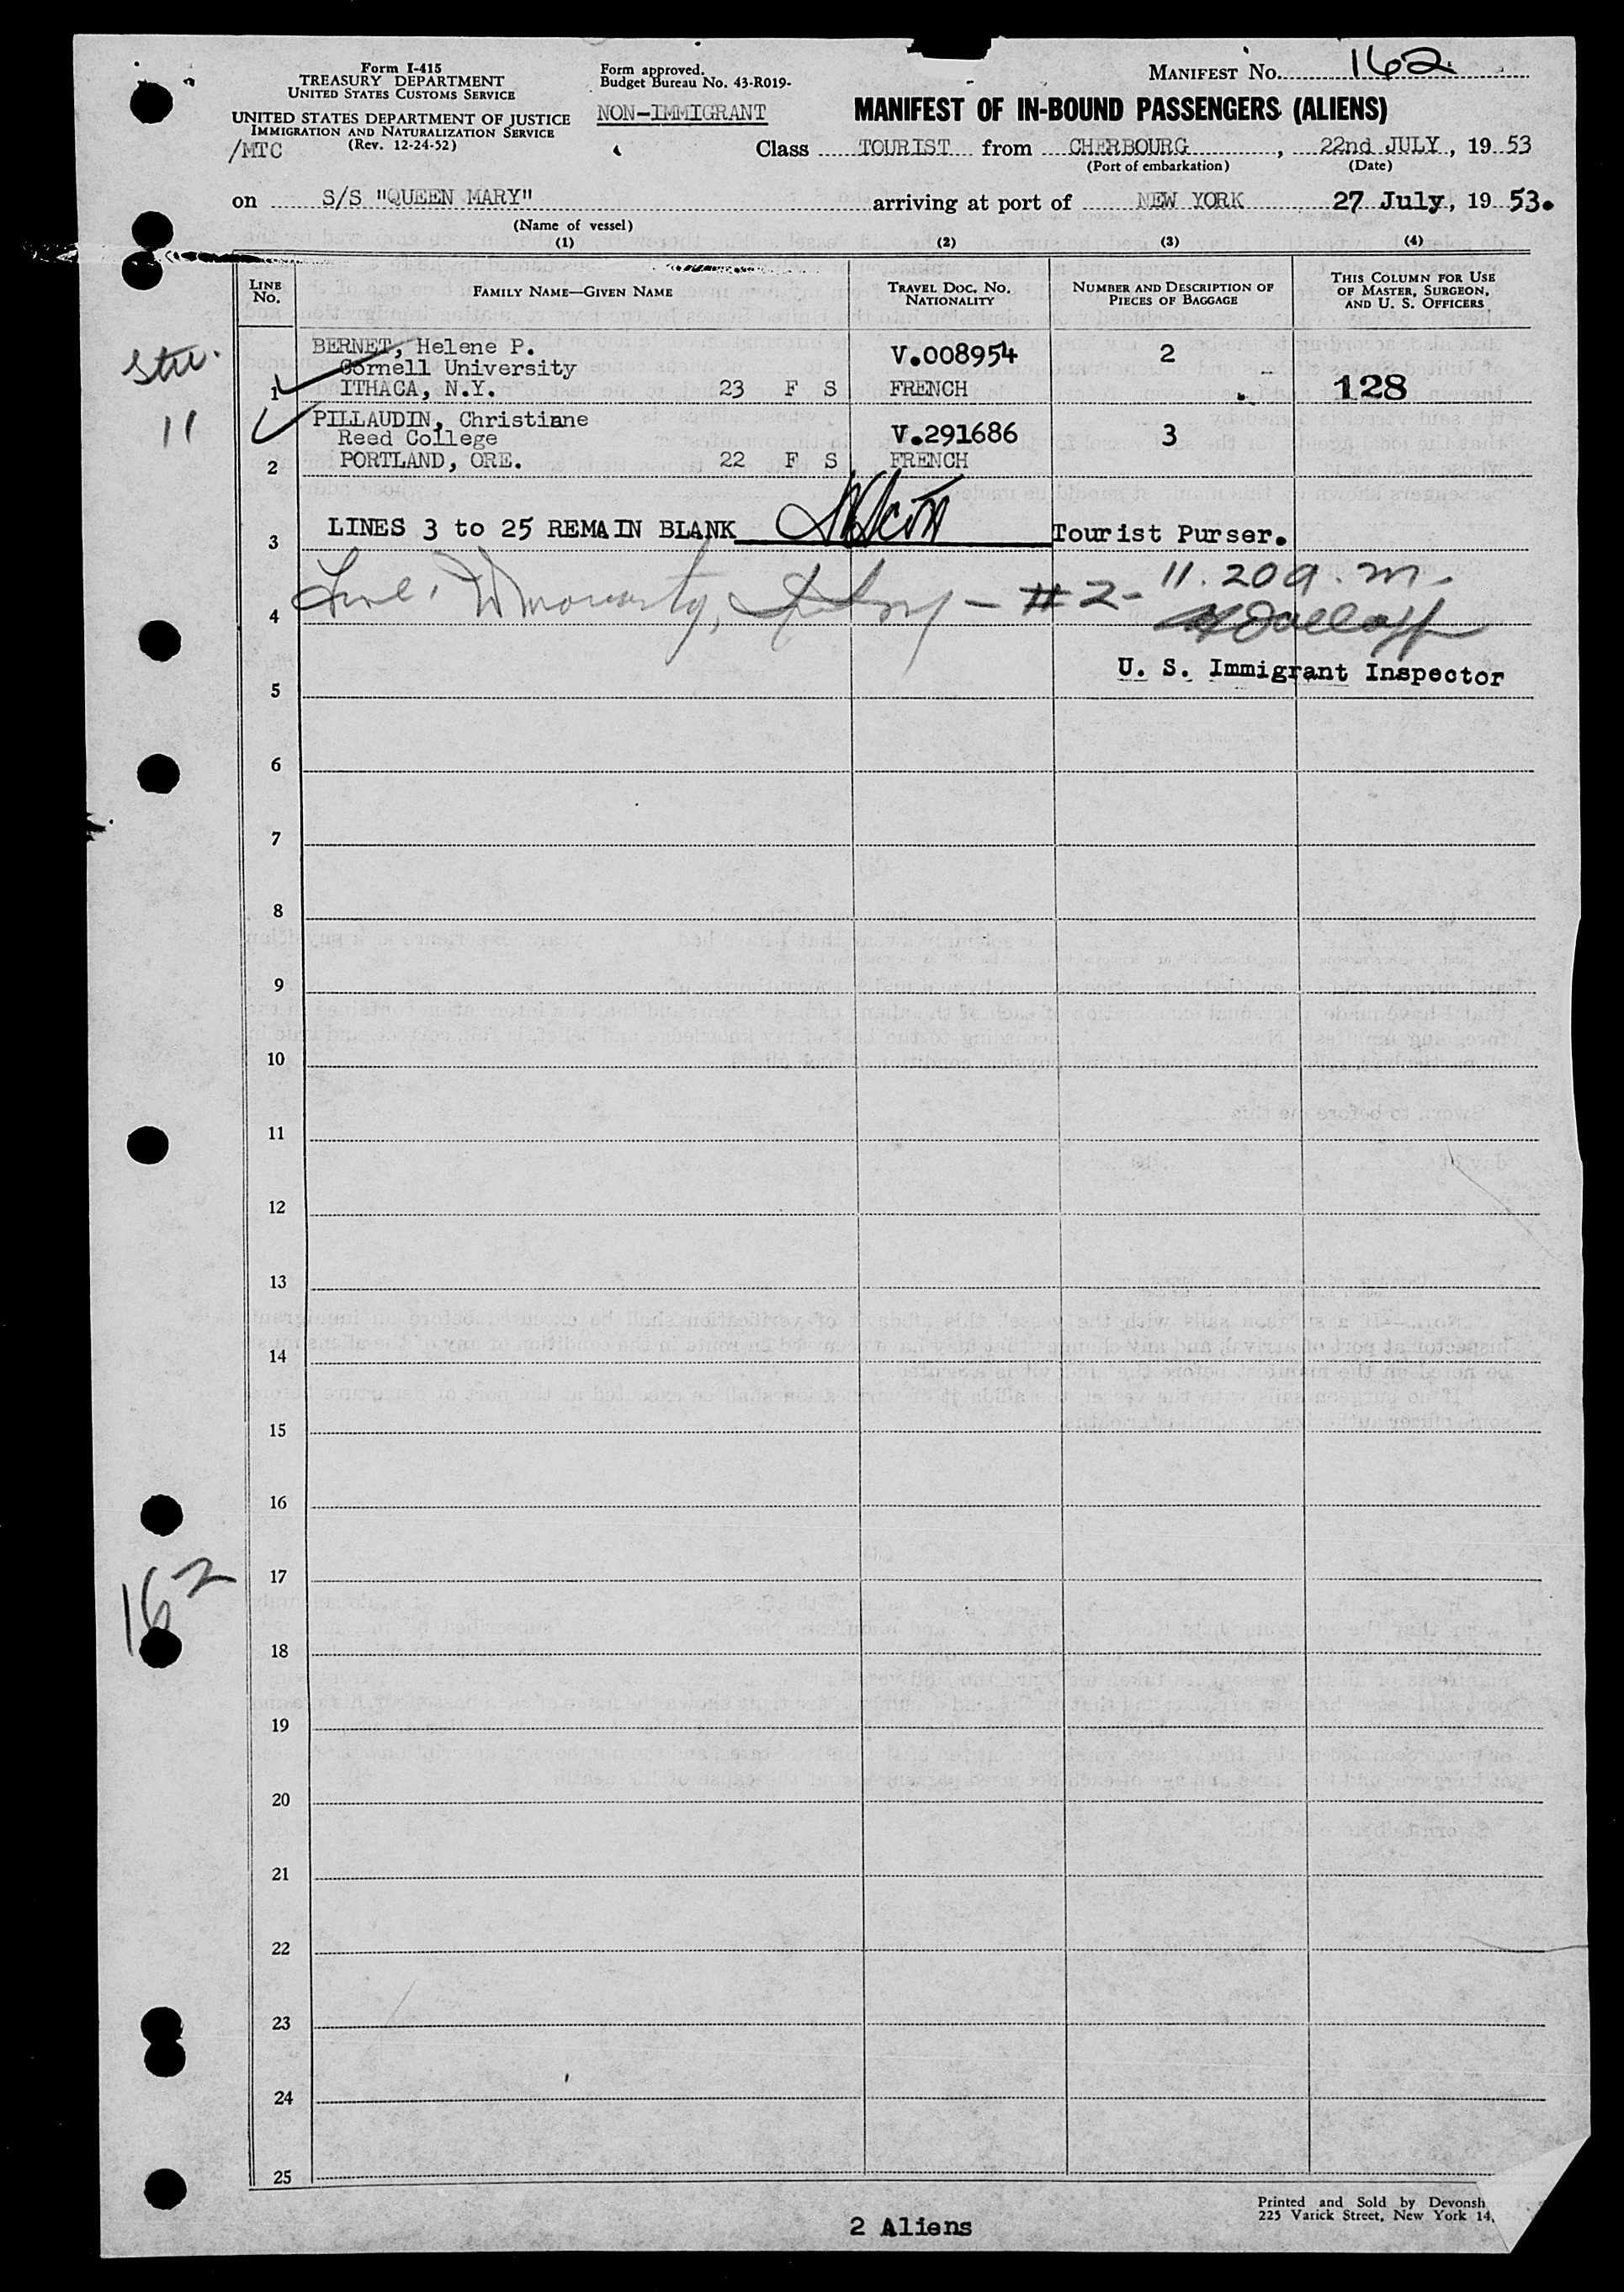 Form I-415
TREASURY DEPARTMENT
UNITED STATES CUSTOMS SERVICE
UNITED STATES DEPARTMENT OF JUSTICE
IMMIGRATION AND NATURALIZATION SERVICE
(Rev. 12-24-52)
/MTC
Form approved.
Budget Bureau No. 43-R019-
NON-IMMIGRANT
MANIFEST NO. 162
MANIFEST OF IN-BOUND PASSENGERS (ALIENS)
Class TOURIST from CHERBOURG, 22nd JULY, 19 53
(Port of embarkation) (Date)
on S/S "QUEEN MARY" arriving at port of NEW YORK 27 July, 19 53.
(Name of vessel)
(1) (2) (3) (4)
LINE NO.
FAMILY NAME—GIVEN NAME
TRAVEL DOC. NO. NATIONALITY
NUMBER AND DESCRIPTION OF PIECES OF BAGGAGE
THIS COLUMN FOR USE OF MASTER, SURGEON, AND U. S. OFFICERS
BERNET, Helene P. V.008954 2
Cornell University
1 ITHACA, N.Y. 23 F S FRENCH 128
11
PILLAUDIN, Christiane
Reed College V.291686 3
2 PORTLAND, ORE. 22 F S FRENCH
3 LINES 3 to 25 REMAIN BLANK Tourist Purser.
4 #2- 11.20 a.m.
U. S. Immigrant Inspector
5
6
7
8
9
10
11
12
13
14
15
16
17
162
18
19
20
21
22
23
24
25
2 Aliens
Printed and Sold by Devonsh
225 Varick Street, New York 14,